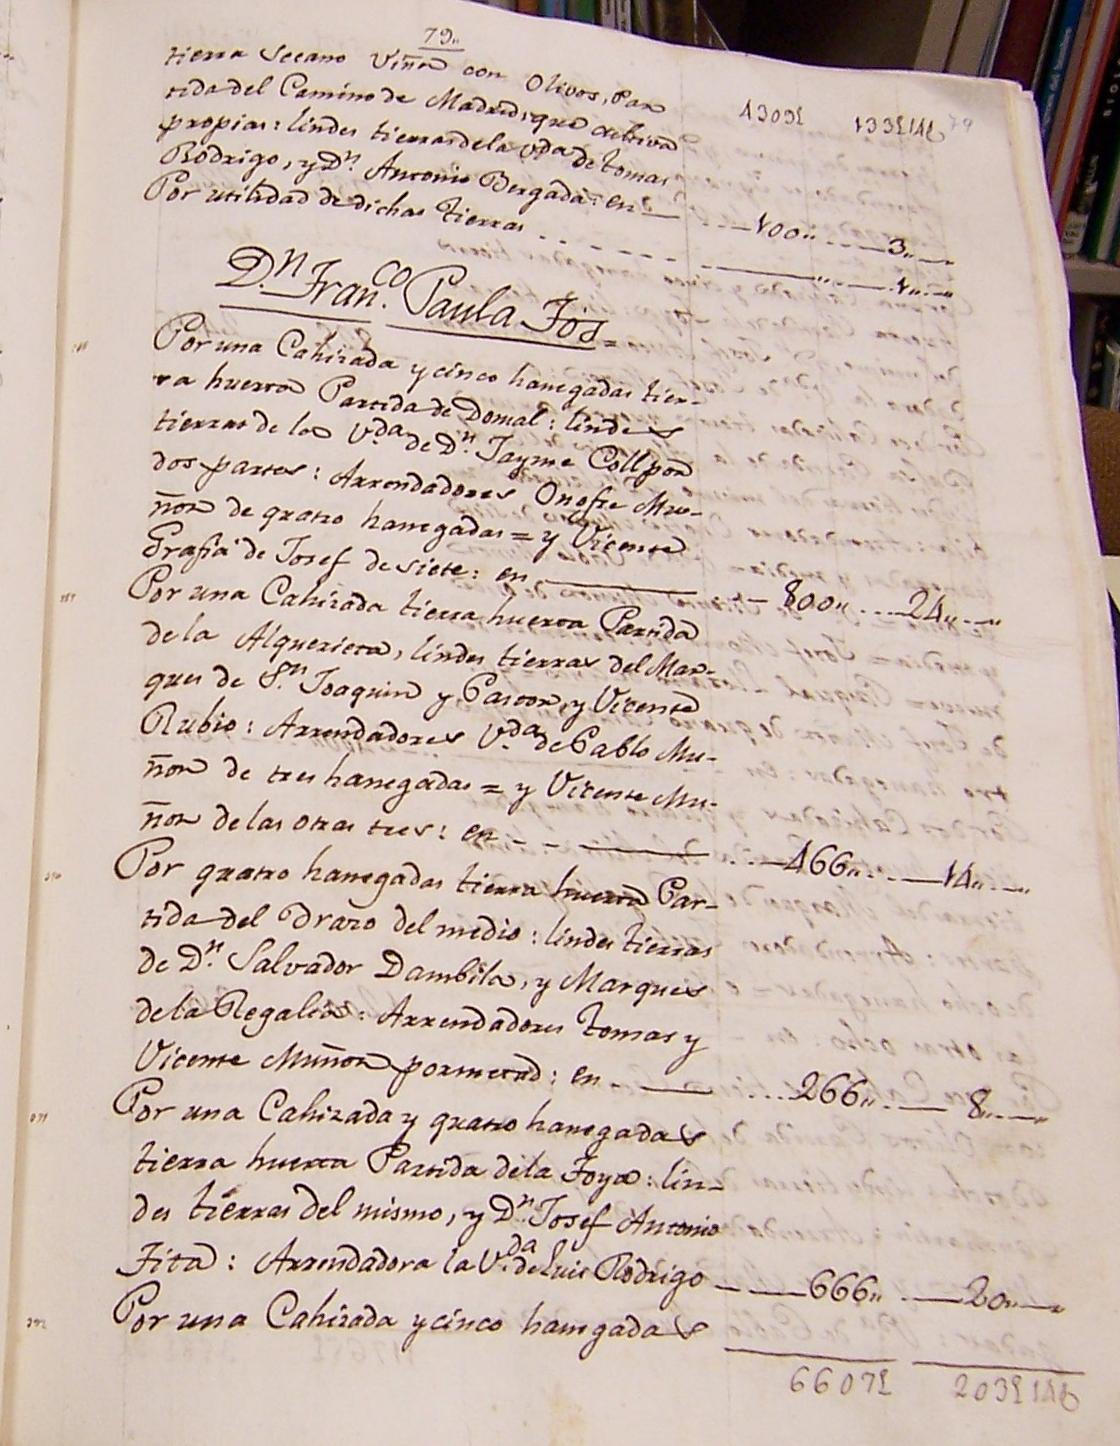 79,,
tierra Secano Viña con Olivos, Par
tida del Camino de Madrid, que cultiva
propias: lindes tierras de la V.da de Tomas
Rodrigo, y D.n Antonio Bergada: en
100,, 3,,
Por utilidad de dichas Tierras
1,,
4303£ 133£14 79
D.n Fran.co Paula Fos =
Por una Cahizada y cinco hanegadas tier-
ra huerta Partida de Domal: lindes
tierras de la V.da de D.n Jayme Coll por
dos partes: Arrendadores Onofre Mu-
ñoz de quatro hanegadas = y Vicente
Grafiá de Josef de siete: en 800,, 24,,
Por una Cahizada tierra huerta Partida
de la Alquerieta, lindes tierras del Mar-
ques de S.n Joaquin y Pastor, y Vicente
Rubio: Arrendadores V.da de Pablo Mu-
ñoz de tres hanegadas = y Vicente Mu-
ñoz de las otras tres: en 466,, 14,,
Por quatro hanegadas tierra huerta Par-
tida del Brazo del medio: lindes tierras
de D.n Salvador Dambila, y Marques
de la Regalia: Arrendadores Tomas y
Vicente Muñoz por mitad: en 266,, 8,,
Por una Cahizada y quatro hanegadas
tierra huerta Partida de la Foya: lin-
des tierras del mismo, y D.n Josef Antonio
Fita: Arrendadora la V.da de Luis Rodrigo 666,, 20,,
Por una Cahizada y cinco hanegadas
6607£ 203£14